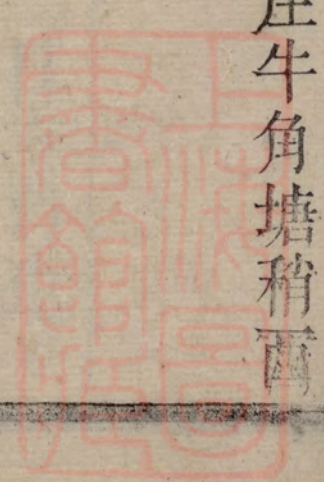 牛角塘稍西
上海圖
書館藏